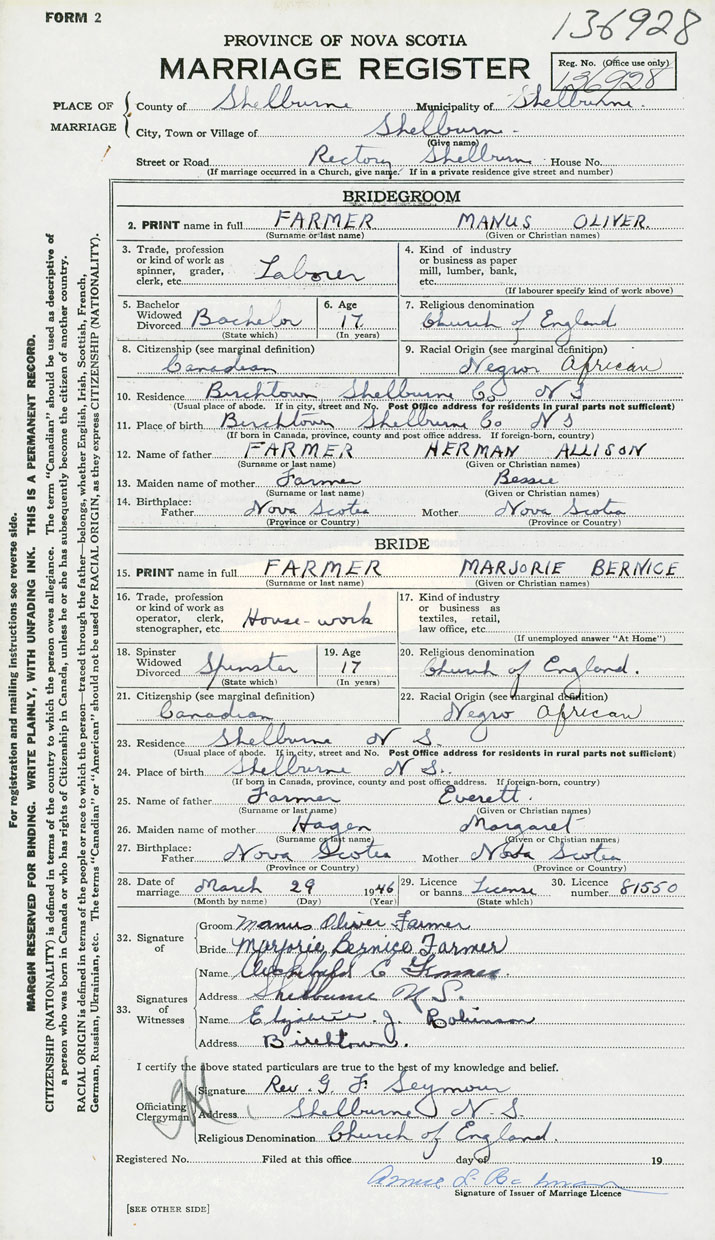 FORM 2
136928
PROVINCE OF NOVA SCOTIA
MARRIAGE REGISTER
Reg. No. (Office use only)
136928
PLACE OF MARRIAGE
County of Shelburne Municipality of Shelburne.
City, Town or Village of Shelburne -
(Give name)
Street or Road Rectory Shelburne House No.
(If marriage occurred in a Church, give name. If in a private residence give street and number)
BRIDEGROOM
2. PRINT name in full FARMER MANUS OLIVER.
(Surname or last name) (Given or Christian names)
3. Trade, profession or kind of work as spinner, grader, clerk, etc. Laborer
4. Kind of industry or business as paper mill, lumber, bank, etc.
(If labourer specify kind of work above)
5. Bachelor Widowed Divorced Bachelor (State which)
6. Age 17 (In years)
7. Religious denomination Church of England
8. Citizenship (see marginal definition) Canadian
9. Racial Origin (see marginal definition) Negro African
10. Residence Birchtown Shelburne Co N S
(Usual place of abode. If in city, street and No. Post Office address for residents in rural parts not sufficient)
11. Place of birth Birchtown Shelburne Co N S
(If born in Canada, province, county and post office address. If foreign-born, country)
12. Name of father FARMER HERMAN ALLISON
(Surname or last name) (Given or Christian names)
13. Maiden name of mother Farmer Bessie
(Surname or last name) (Given or Christian names)
14. Birthplace: Father Nova Scotia Mother Nova Scotia
(Province or Country) (Province or Country)
BRIDE
15. PRINT name in full FARMER MARJORIE BERNICE
(Surname or last name) (Given or Christian names)
16. Trade, profession or kind of work as operator, clerk, stenographer, etc. House-work
17. Kind of industry or business as textiles, retail, law office, etc.
(If unemployed answer "At Home")
18. Spinster Widowed Divorced Spinster (State which)
19. Age 17 (In years)
20. Religious denomination Church of England.
21. Citizenship (see marginal definition) Canadian
22. Racial Origin (see marginal definition) Negro African
23. Residence Shelburne N S.
(Usual place of abode. If in city, street and No. Post Office address for residents in rural parts not sufficient)
24. Place of birth Shelburne N S.
(If born in Canada, province, county and post office address. If foreign-born, country)
25. Name of father Farmer Everett.
(Surname or last name) (Given or Christian names)
26. Maiden name of mother Hagen Margaret
(Surname or last name) (Given or Christian names)
27. Birthplace: Father Nova Scotia Mother Nova Scotia
(Province or Country) (Province or Country)
28. Date of marriage March 29 1946
(Month by name) (Day) (Year)
29. Licence or banns License (State which)
30. Licence number 81550
32. Signature of
Groom Manus Oliver Farmer
Bride Marjorie Bernice Farmer
33. Signatures of Witnesses
Name Archibald C
Address Shelburne N S.
Name J. Robinson
Address Birchtown.
I certify the above stated particulars are true to the best of my knowledge and belief.
Officiating Clergyman
Signature Rev. G F Seymour
Address Shelburne N. S.
Religious Denomination Church of England.
Registered No. Filed at this office day of 19
Signature of Issuer of Marriage Licence
[SEE OTHER SIDE]
For registration and mailing instructions see reverse side.
MARGIN RESERVED FOR BINDING. WRITE PLAINLY, WITH UNFADING INK. THIS IS A PERMANENT RECORD.
CITIZENSHIP (NATIONALITY) is defined in terms of the country to which the person owes allegiance. The term "Canadian" should be used as descriptive of
a person who was born in Canada or who has rights of Citizenship in Canada, unless he or she has subsequently become the citizen of another country.
RACIAL ORIGIN is defined in terms of the people or race to which the person—traced through the father—belongs, whether English, Irish, Scottish, French,
German, Russian, Ukrainian, etc. The terms "Canadian" or "American" should not be used for RACIAL ORIGIN, as they express CITIZENSHIP (NATIONALITY).